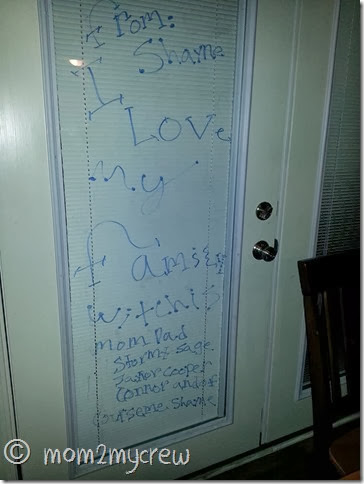 From:
Shayne
I
Love
my
family
witch is
mom Dad
Stormy sage
Junior cooper
Connor and of
courseme. Shayne
© mom2mycrew